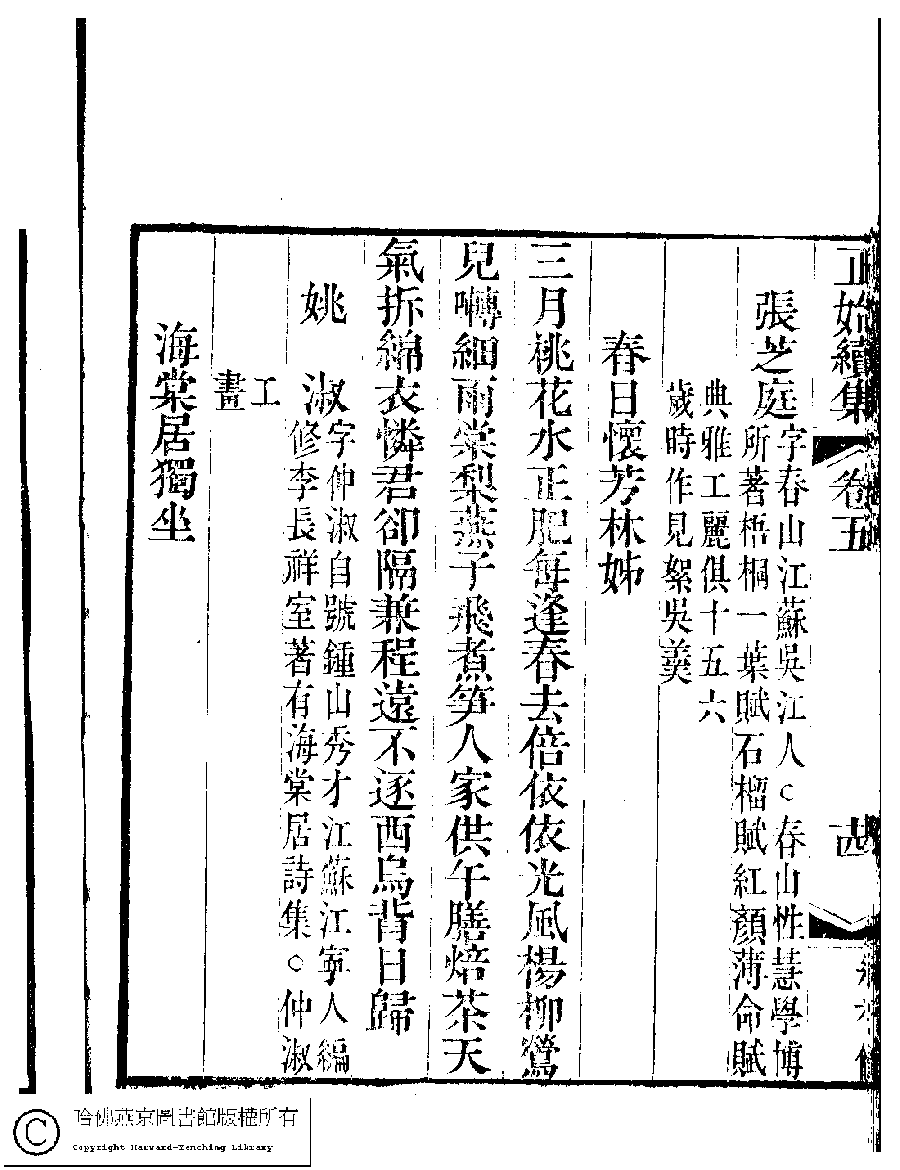 正始續集
卷五
張芝庭
字春山江蘇吳江人○春山性慧學博
所著梧桐一葉賦石榴賦紅顏薄命賦
典雅工麗俱十五六
歲時作見絮吳羹
春日懷芳林姊
三月桃花水正肥每逢春去倍依依光風楊柳鶯
兒囀細雨棠梨燕子飛煮笋人家供午膳焙茶天
氣拆綿衣憐君卻隔兼程遠不逐西烏背日歸
姚淑
字仲淑自號鍾山秀才江蘇江寧人編
修李長祥室著有海棠居詩集○仲淑
工
畫
海棠居獨坐
哈佛燕京圖書館版權所有
Copyright Harvard-Yenching Library